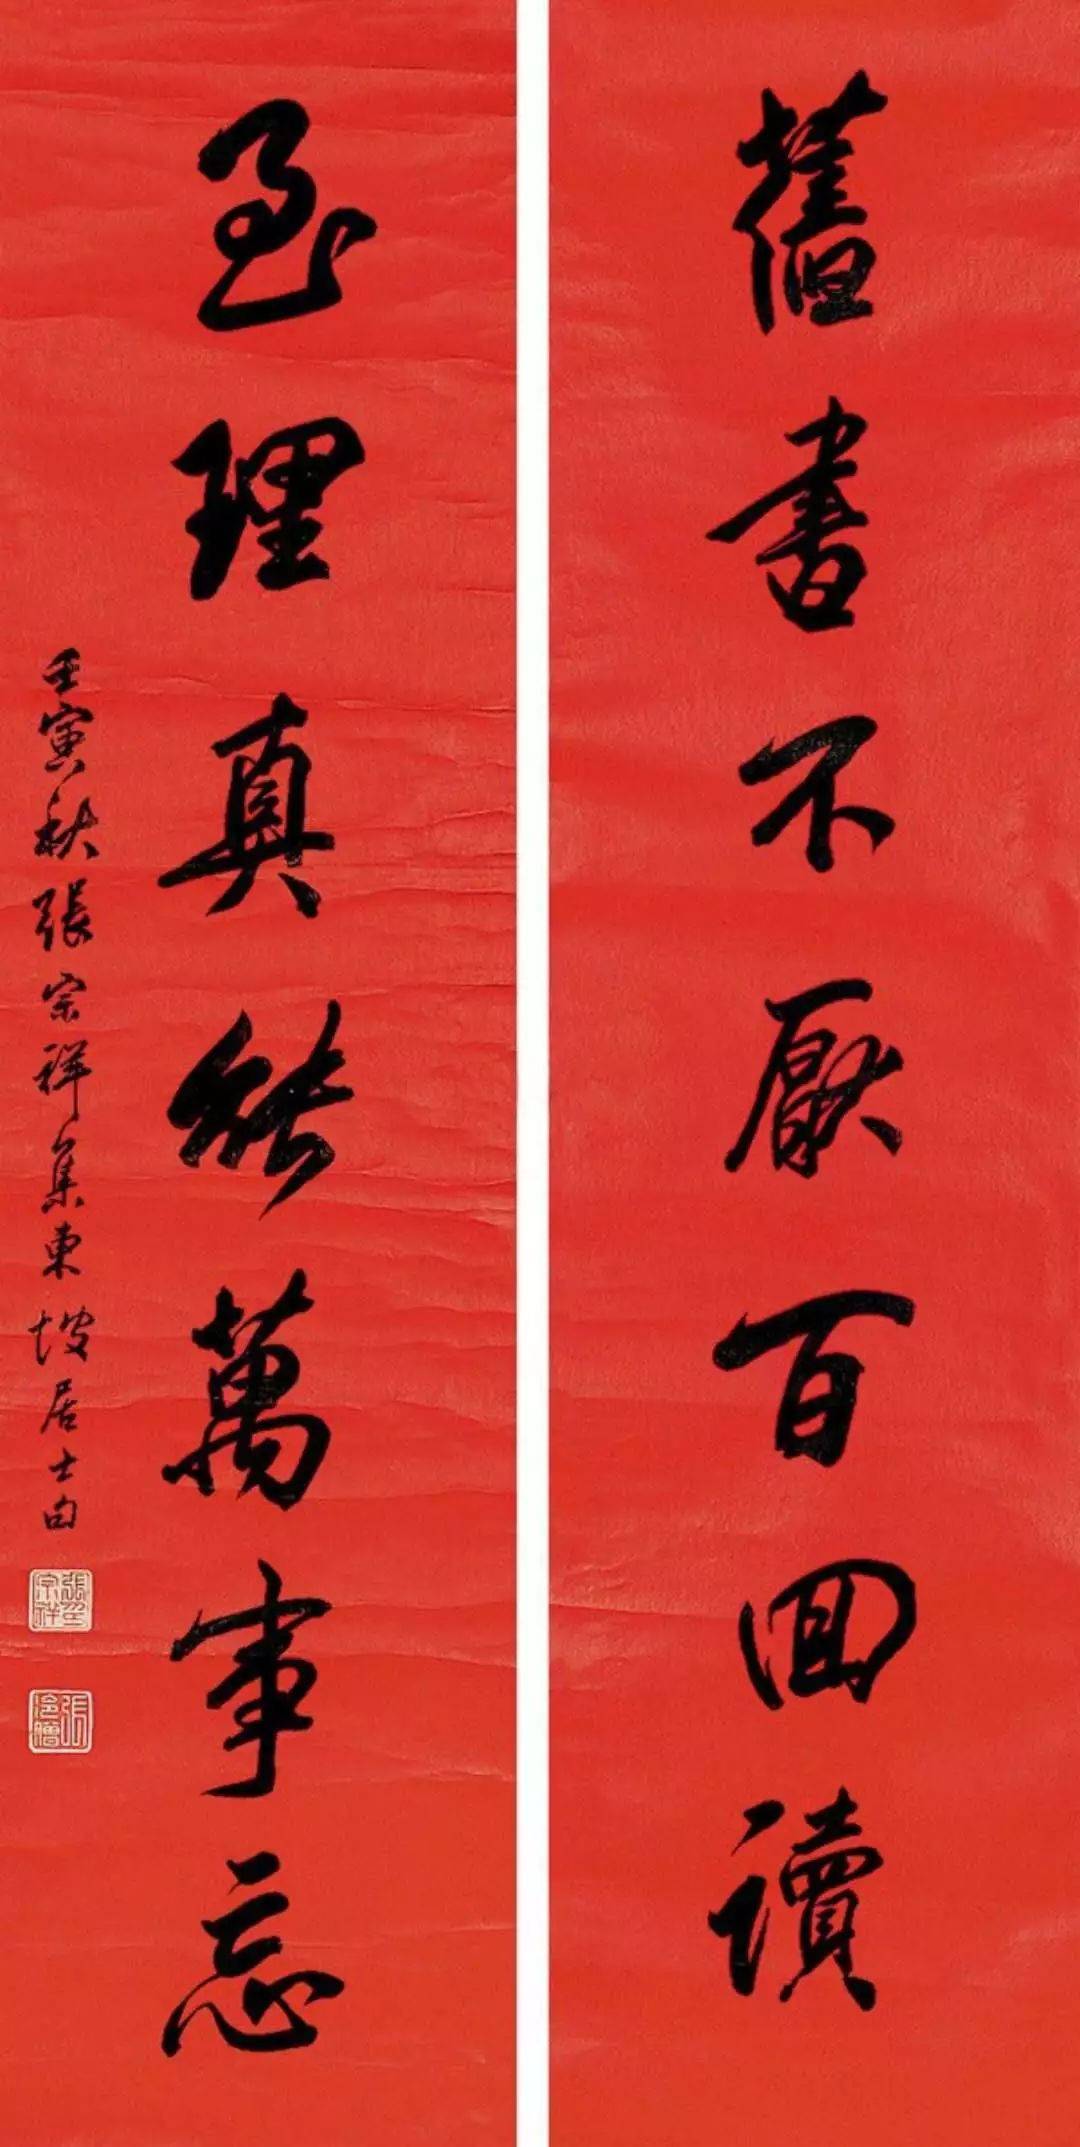 舊書不厭百回讀
至理真能萬事忘
壬寅秋張宗祥集東坡居士句
張宗祥
張冷僧